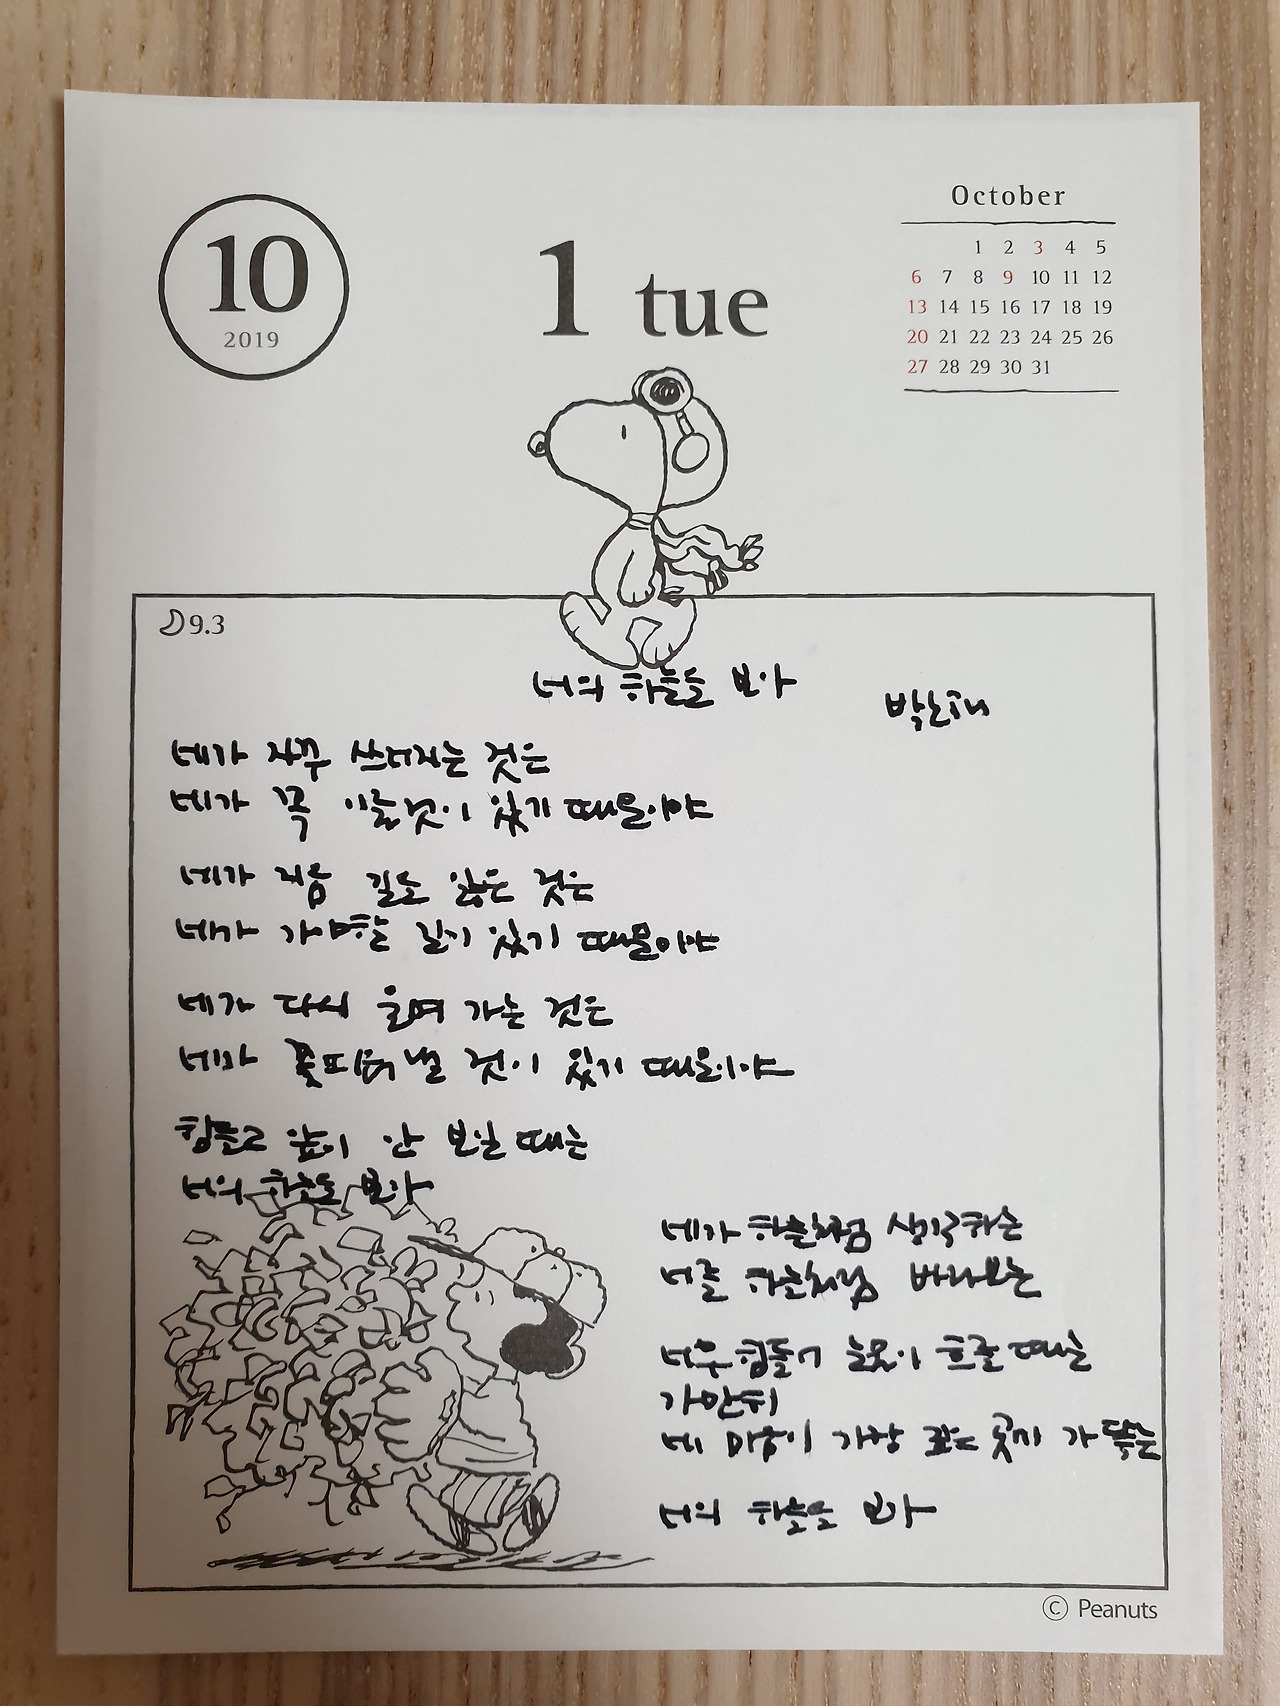 10
2019
1 tue
October
1 2 3 4 5
6 7 8 9 10 11 12
13 14 15 16 17 18 19
20 21 22 23 24 25 26
27 28 29 30 31
9.3
너의 하늘을 보아
박노해
네가 자꾸 쓰러지는 것은
네가 꼭 이룰것이 있기 때문이야
네가 지금 길을 잃은 것은
네가 가야할 길이 있기 때문이야
네가 다시 울며 가는 것은
네가 꽃피워 낼 것이 있기 때문이야
힘들고 앞이 안 보일 때는
너의 하늘을 보아
네가 하늘처럼 생각하는
너를 하늘처럼 바라보는
너무 힘들어 눈물이 흐를 때는
가만히
네 마음이 가장 깊은 곳에 가 닿는
너의 하늘을 보아
© Peanuts